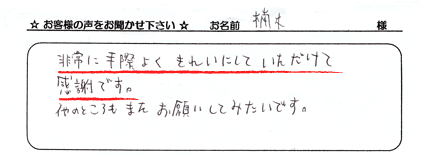 ☆ お客様の声をお聞かせ下さい ☆ お名前 楠木 様
非常に手際よくきれいにしていただけて
感謝です。
他のところもまたお願いしてみたいです。